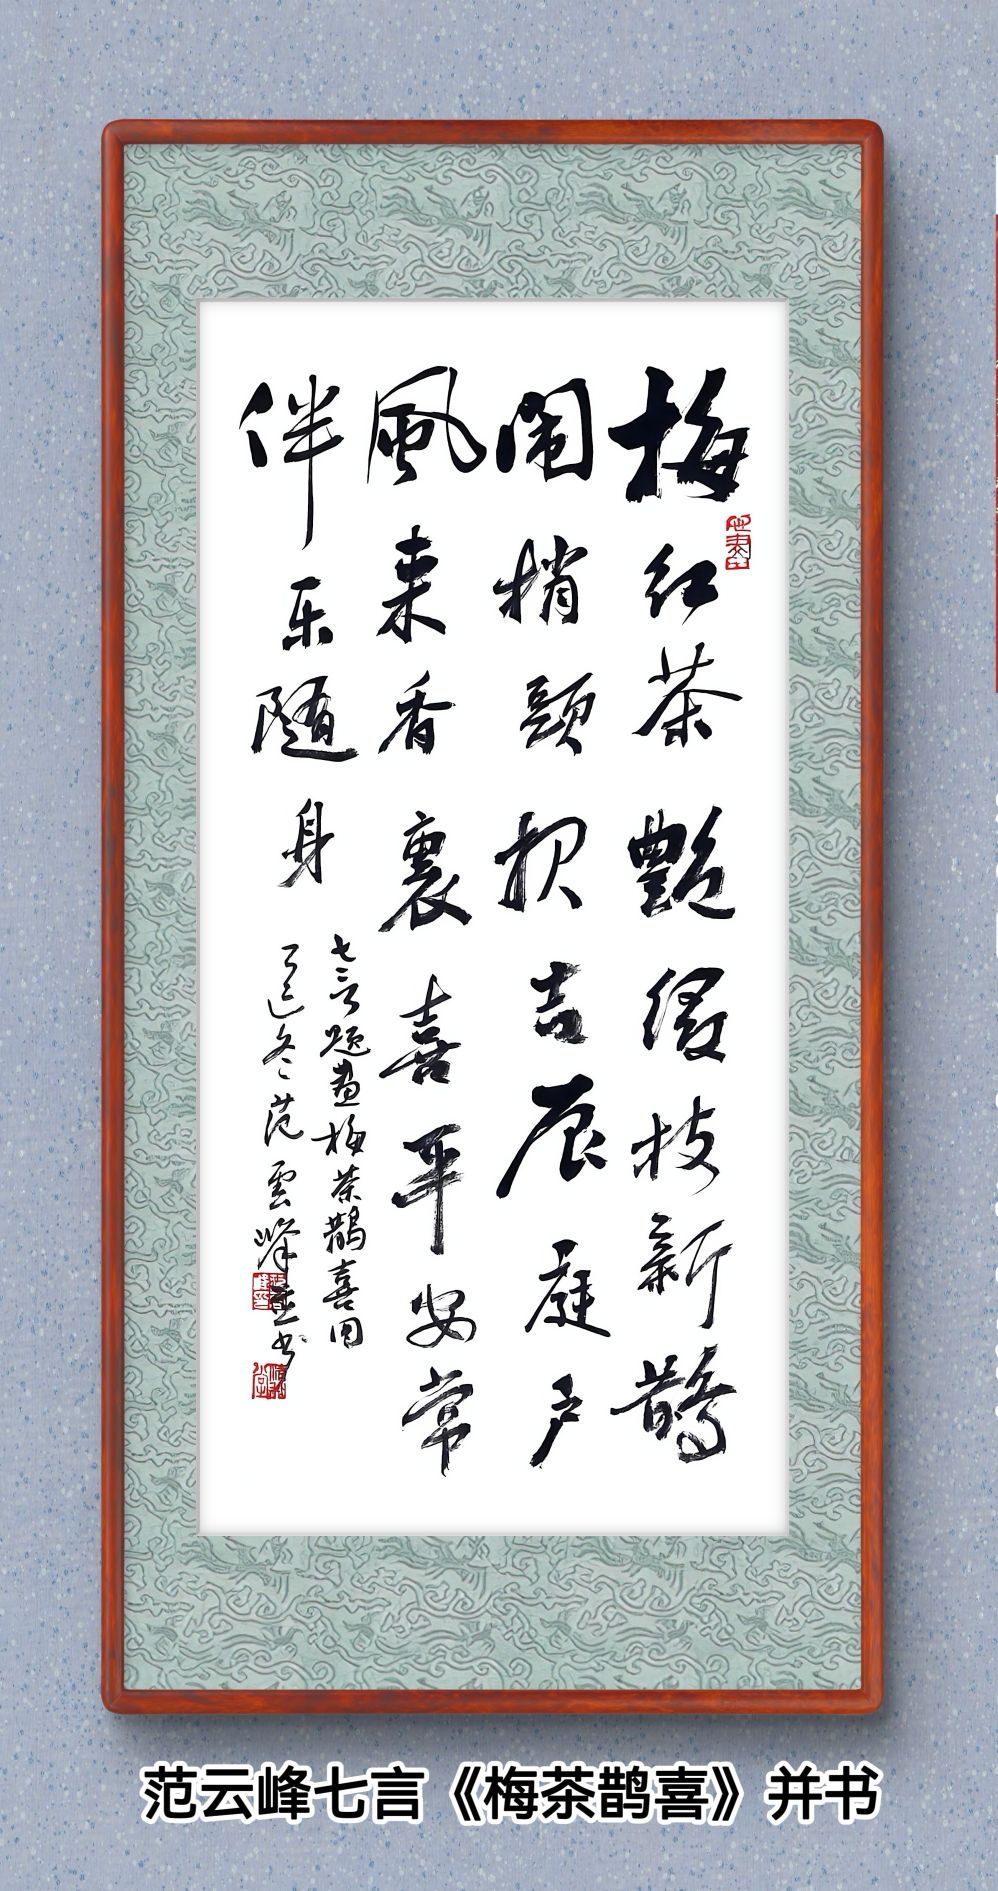 梅红茶艷缀枝新鹊
闹梢頭报吉辰庭户
風来香裏喜平安常
伴乐随身
七言题画梅茶鹊喜图
乙巳冬范雲峰並书
范云峰七言《梅茶鹊喜》并书